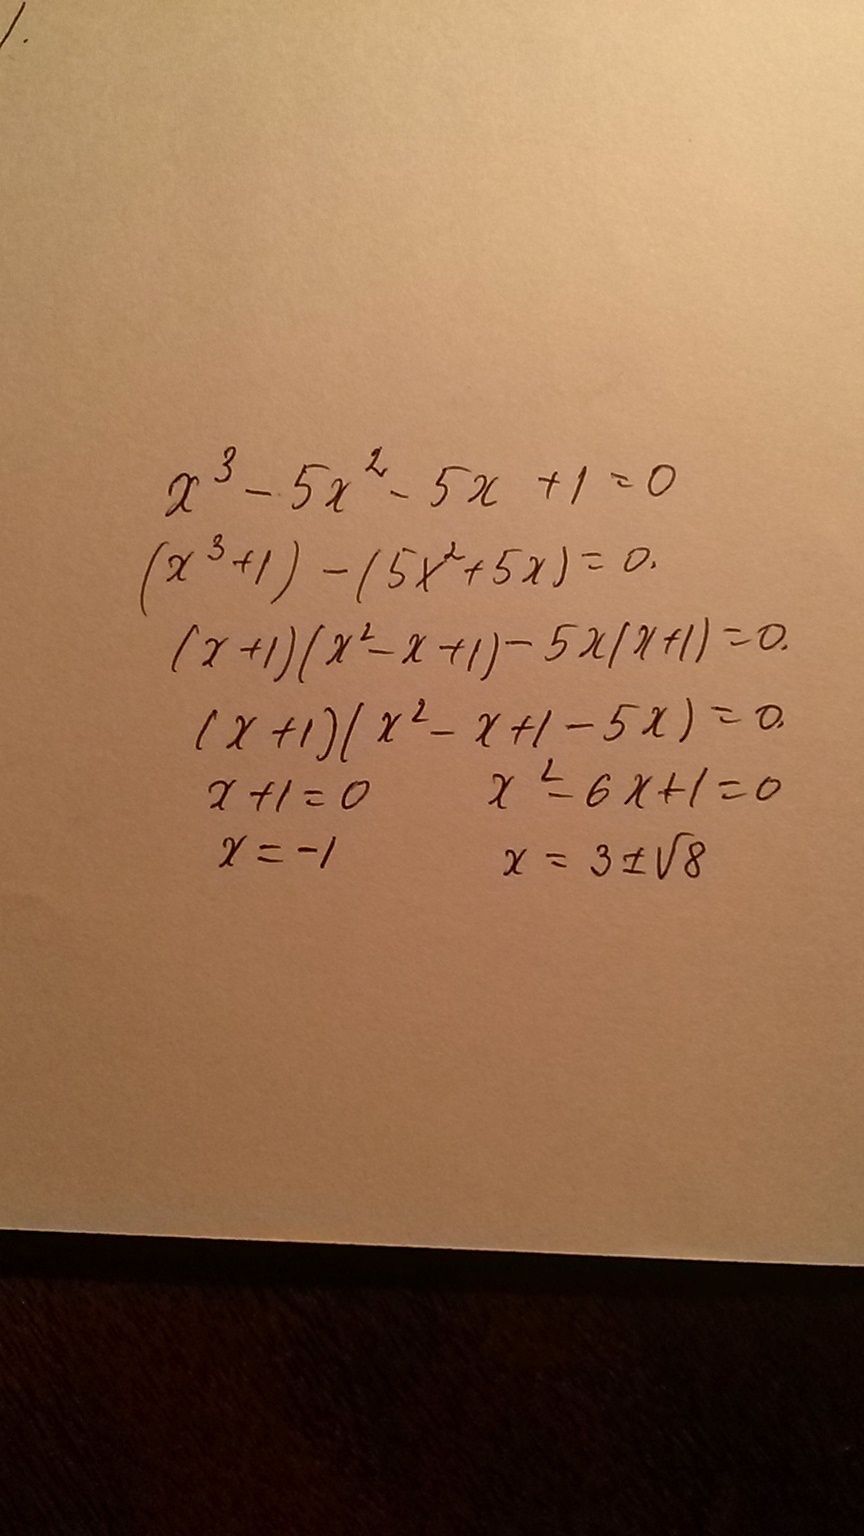 1.
x³ - 5x² - 5x + 1 = 0
(x³+1) - (5x²+5x) = 0.
(x+1)(x²-x+1) - 5x(x+1) = 0.
(x+1)(x²-x+1-5x) = 0.
x+1=0 x²-6x+1=0
x=-1 x = 3±√8